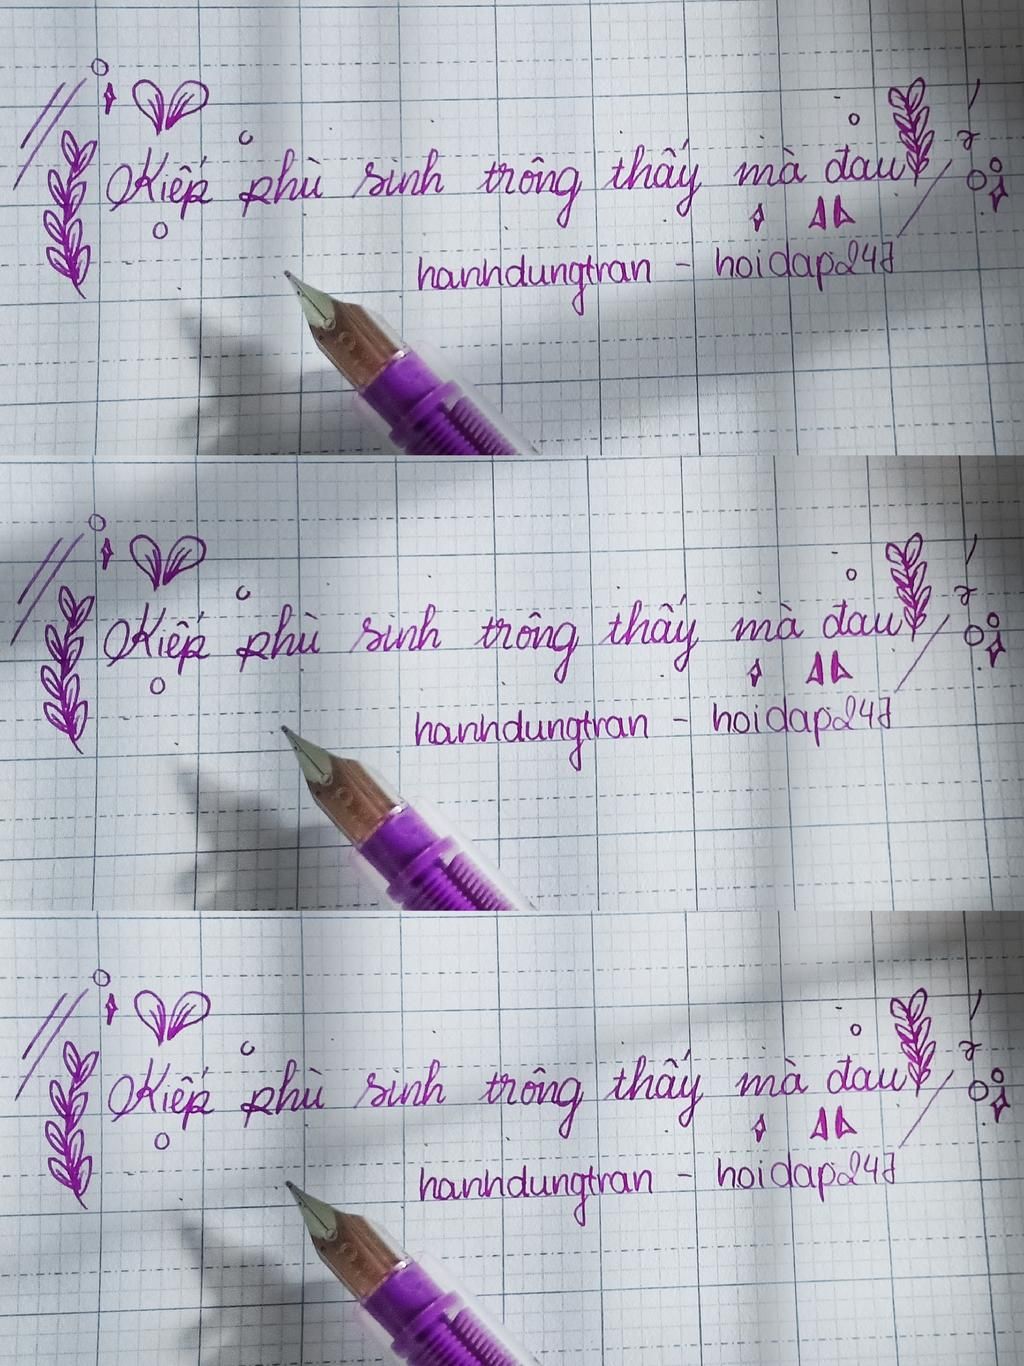 Kiếp phù sinh trông thấy mà đau
hanhdungtran - hoidap247
Kiếp phù sinh trông thấy mà đau
hanhdungtran - hoidap247
Kiếp phù sinh trông thấy mà đau
hanhdungtran - hoidap247